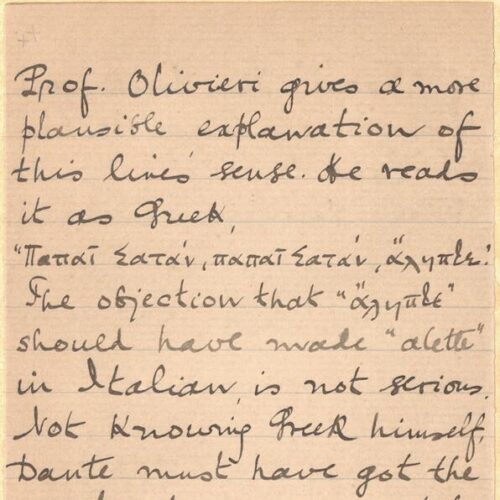 Prof. Olivieri gives a more
plausible explanation of
this line's sense. He reads
it as Greek,
"Παπαῖ Σατάν, παπαῖ Σατάν, ἄληπτε!
The objection that "ἄληπτε"
should have made "alette"
in Italian, is not serious.
Not knowing Greek himself,
Dante must have got the